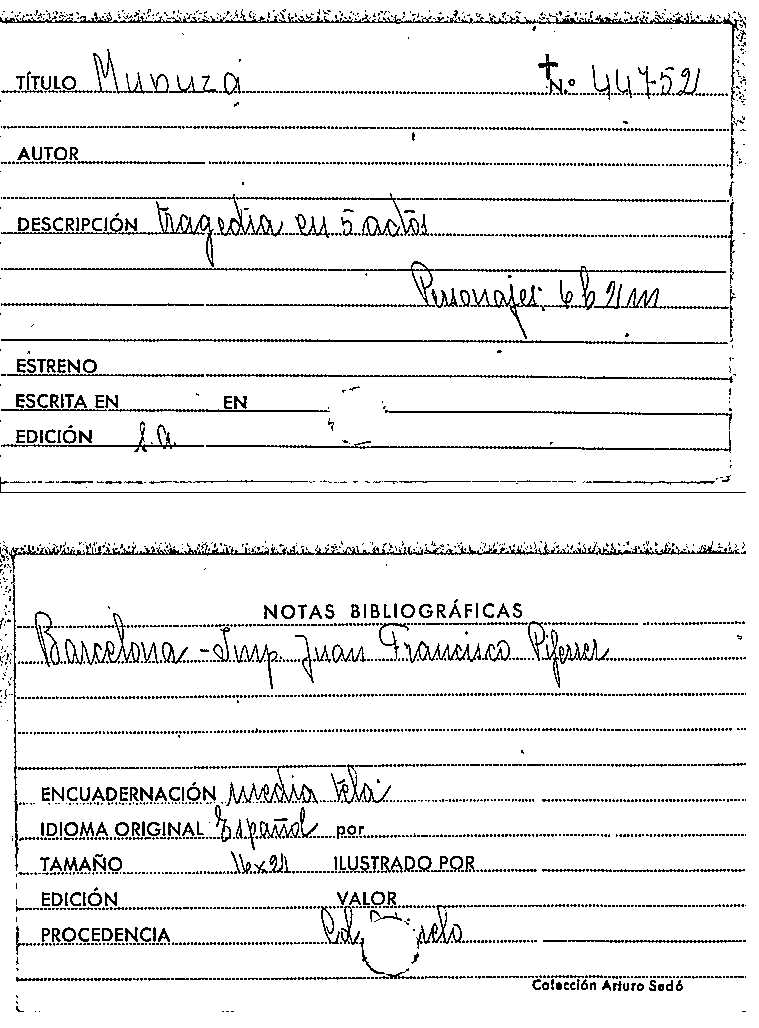 TÍTULO Munuza N.º 44752
AUTOR
DESCRIPCIÓN tragedia en 5 actos
Personajes: 6 h 2 m
ESTRENO
ESCRITA EN EN
EDICIÓN s.a.
NOTAS BIBLIOGRÁFICAS
Barcelona - Imp. Juan Francisco Piferrer
ENCUADERNACIÓN media tela
IDIOMA ORIGINAL Español por
TAMAÑO 16x21 ILUSTRADO POR
EDICIÓN VALOR
PROCEDENCIA
Colección Arturo Sedó